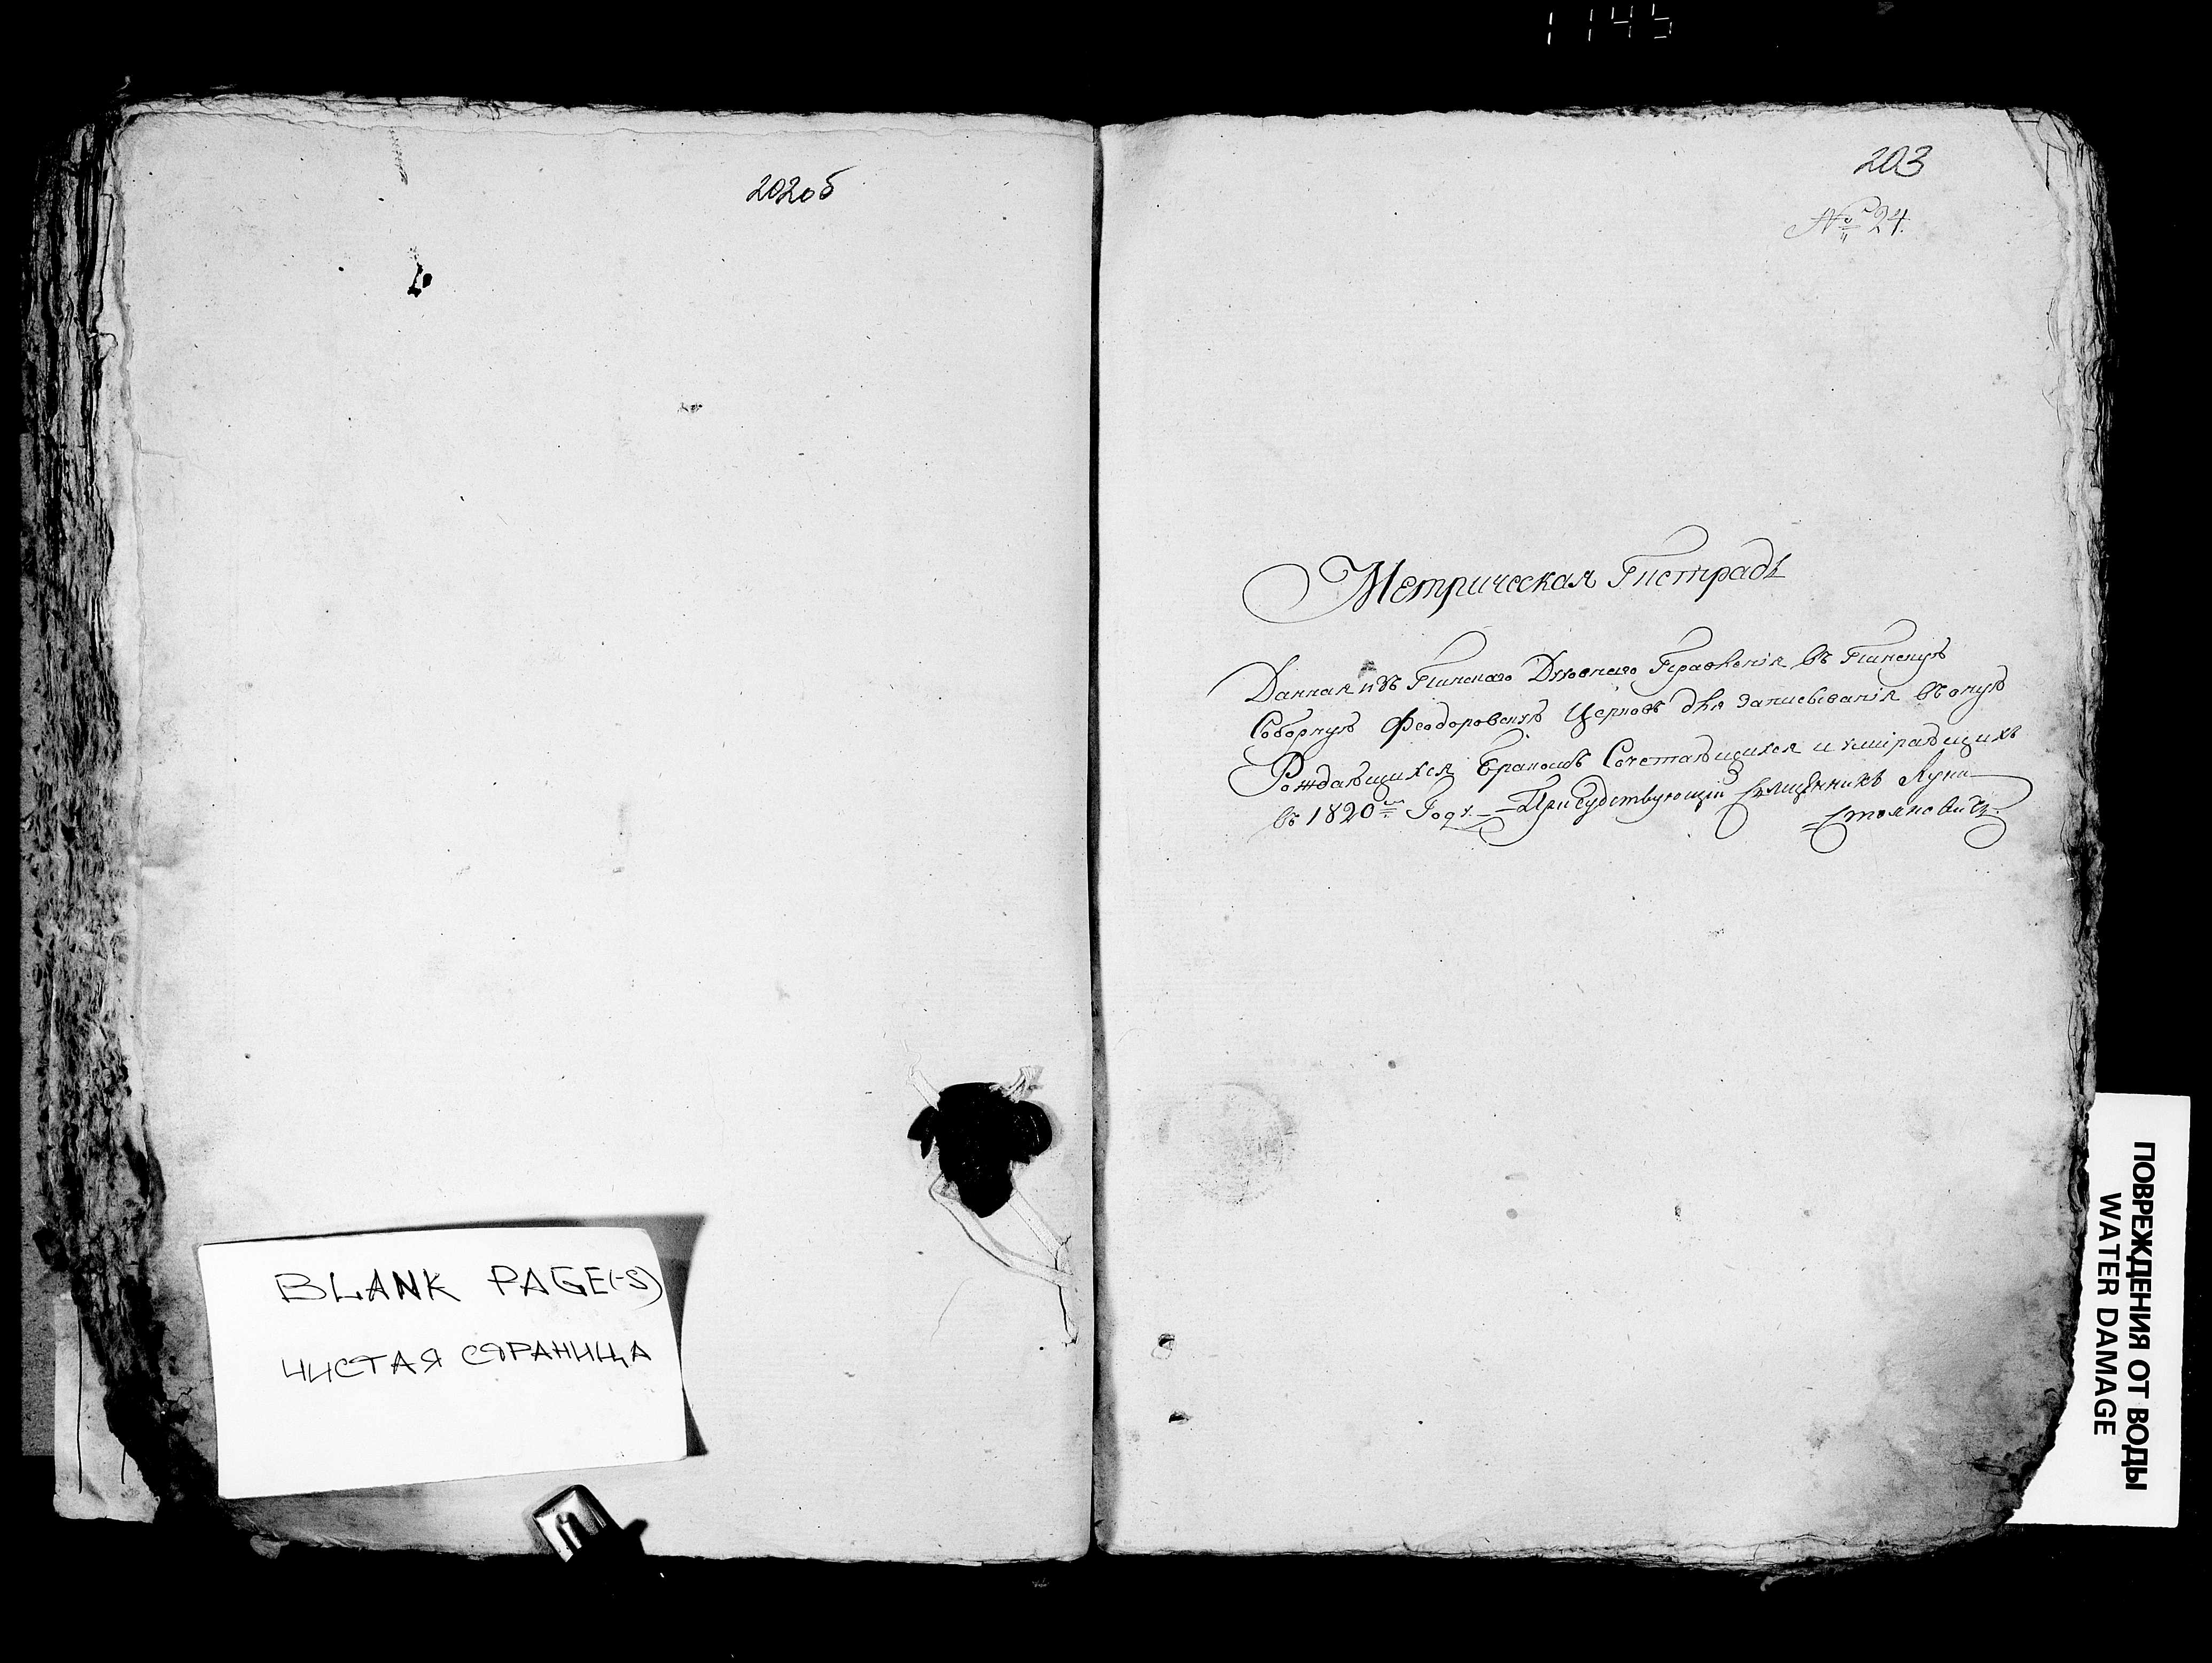 1145
202об
203
№ 24.
Метрическая Тистрадь
Данная изъ Пинскаго Духовнаго Правленія въ Пинскую
Соборную Феодоровскую Церковь для записыванія въ оную
Рождающихся Бракомъ Сочетающихся и умирающихъ
въ 1820м Году. Присудствующій Священникъ Лука
Стояновичъ
BLANK PAGE(-S)
ЧИСТАЯ СТРАНИЦА
ПОВРЕЖДЕНИЯ ОТ ВОДЫ
WATER DAMAGE